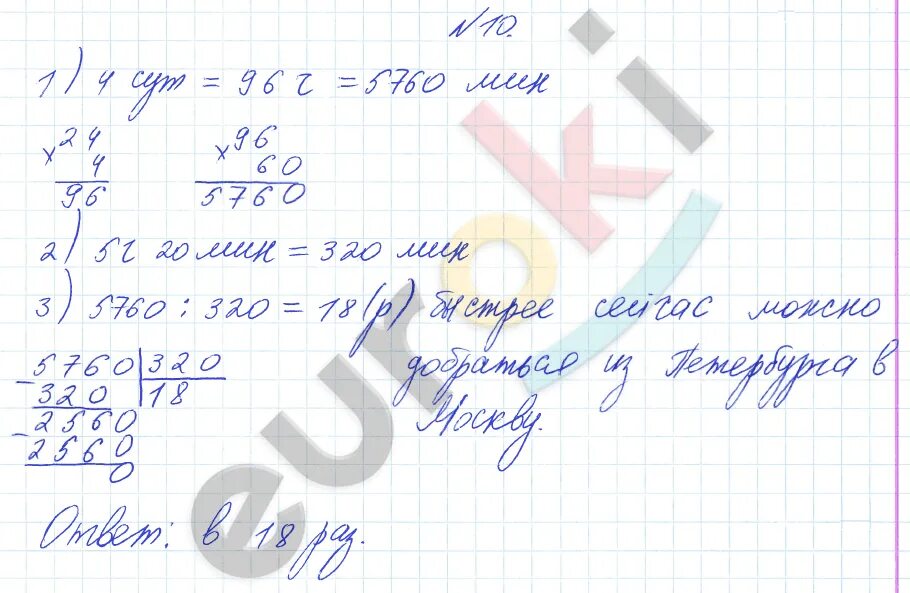 №10.
1) 4 сут = 96 ч = 5760 мин
× 24
4
96
× 96
60
5760
2) 5ч 20 мин = 320 мин
3) 5760 : 320 = 18 (р) быстрее сейчас можно
добраться из Петербурга в
Москву.
− 5760 | 320
320 | 18
− 2560
2560
0
Ответ: в 18 раз.
euroki